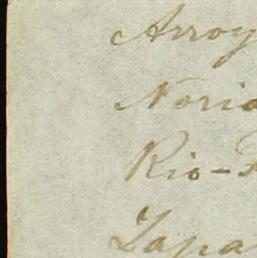 Arroy
Noria
Rio-
Zapa